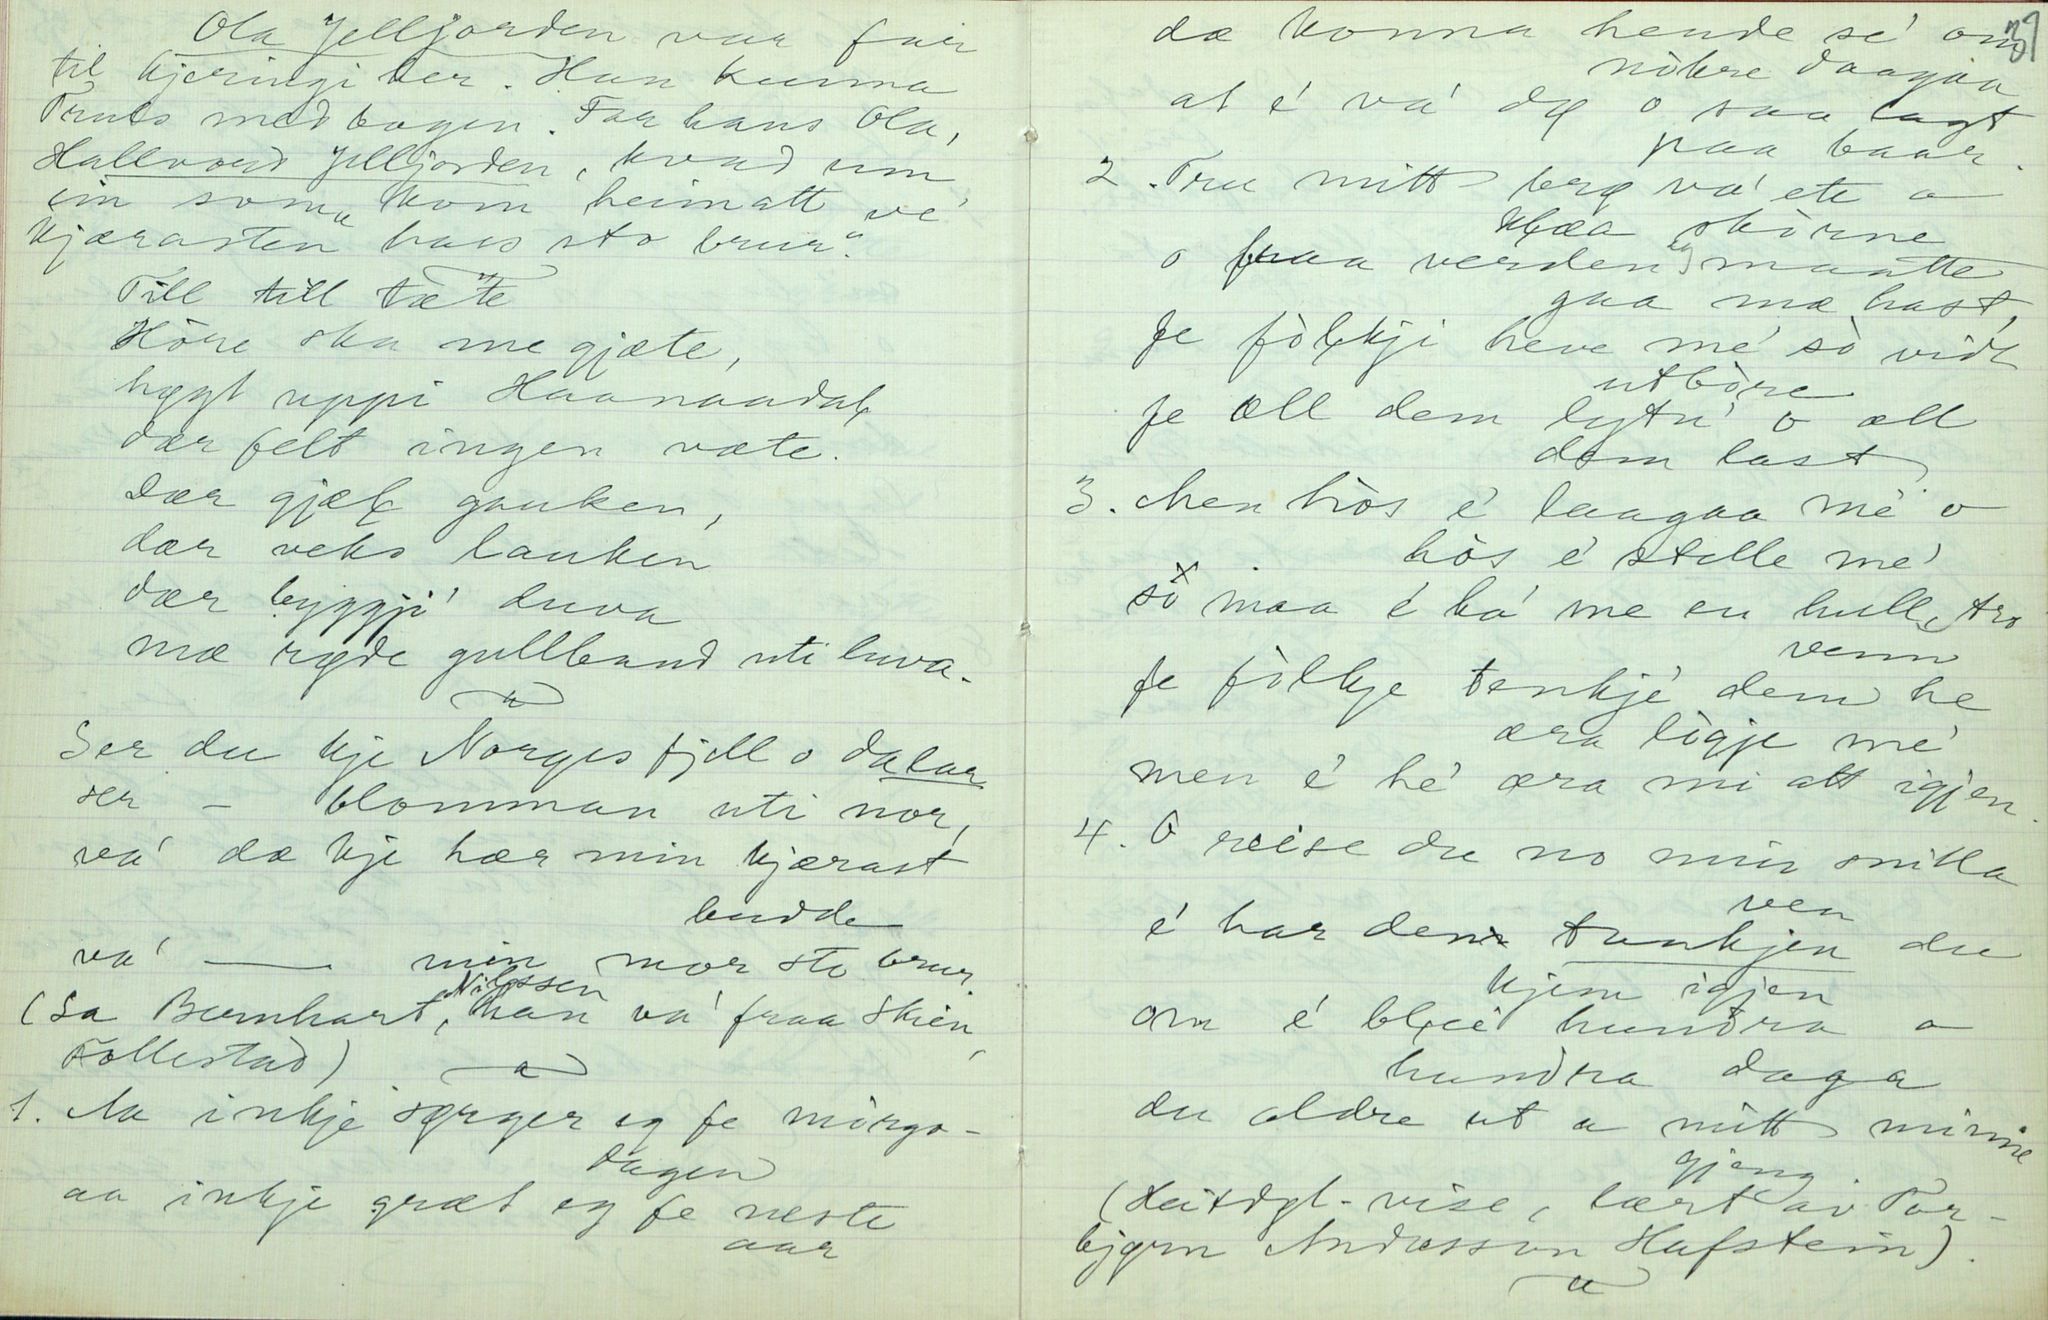 Ola Jelljorden var fair
til kjeringi her. Han kunna
Truls med bogen. Far hans Ola,
Hallvord Jelljorden, kvad um
ein som "kom heimatt ve'
kjærasten hass sto brur".
Till till tæte
Höre ska me gjæte,
høgt uppi Haanaadalę
dær felt ingen væte.
Dær gjælę gauken,
dær veks lauken
dær byggji' duva
mæ røde gullband uti luva.
Ser du kje Norges fjell o dalar
ser — blomman uti nor,
va' dæ kje hær min kjærast
budde
va' — min mor sto brur.
(Sa Bernhart Nilssen, han va' fraa Skien,
Follestad)
1. Aa inkje sørger eg fe mòrgo-
dagen
aa inkje græt eg fe neste
aar
39
dæ konna hende se' om
nòkre daagaa
at é va' dø o saa lagt
paa baar.
2. Fru mitt berę va' ete o
klæa skòrne
o fraa verden eg maatte
gaa mæ hast,
fe fòlkji heve mé sò vidt
utbòre
fe all dem lytu' o all
dem last
3. Men hòs é laagaa mé o
hòs é stelle mé
sò maa é ha' me en hull, tro
venn
fe fòlkje tenkjé dem he
æra lògje mé
men é hé æra mi att igjen.
4. O reise du no min snilla
ven
é har den tankjen du
kjem igjen
om é bleie hundra o
hundra daga
du aldre ut a mitt minne
gjeng
(Heitdgl-vise, lært av Tor-
bjørn Andresson Hafstein).